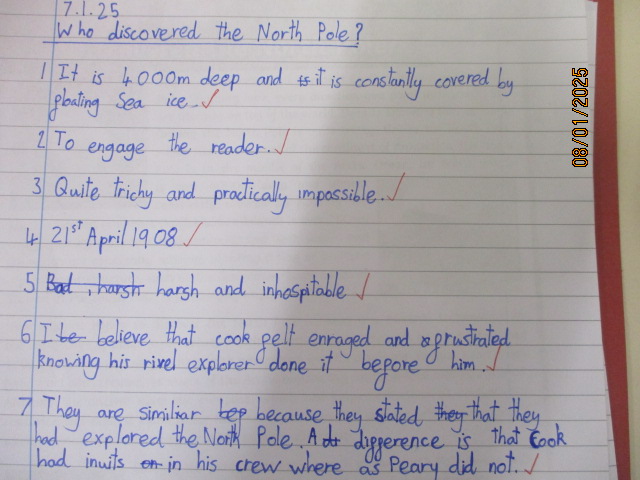 7.1.25
Who discovered the North Pole?
1 It is 4000m deep and is it is constantly covered by
floating Sea ice.
2 To engage the reader.
3 Quite trichy and practically impossible.
4 21st April 1908
5 Bad, harsh harsh and inhospitable
6 I be believe that cook felt enraged and frustrated
knowing his rivel explorer done it before him.
7 They are similiar because they stated they that they
had explored the North Pole. A difference is that Cook
had inuits on in his crew where as Peary did not.
08/01/2025